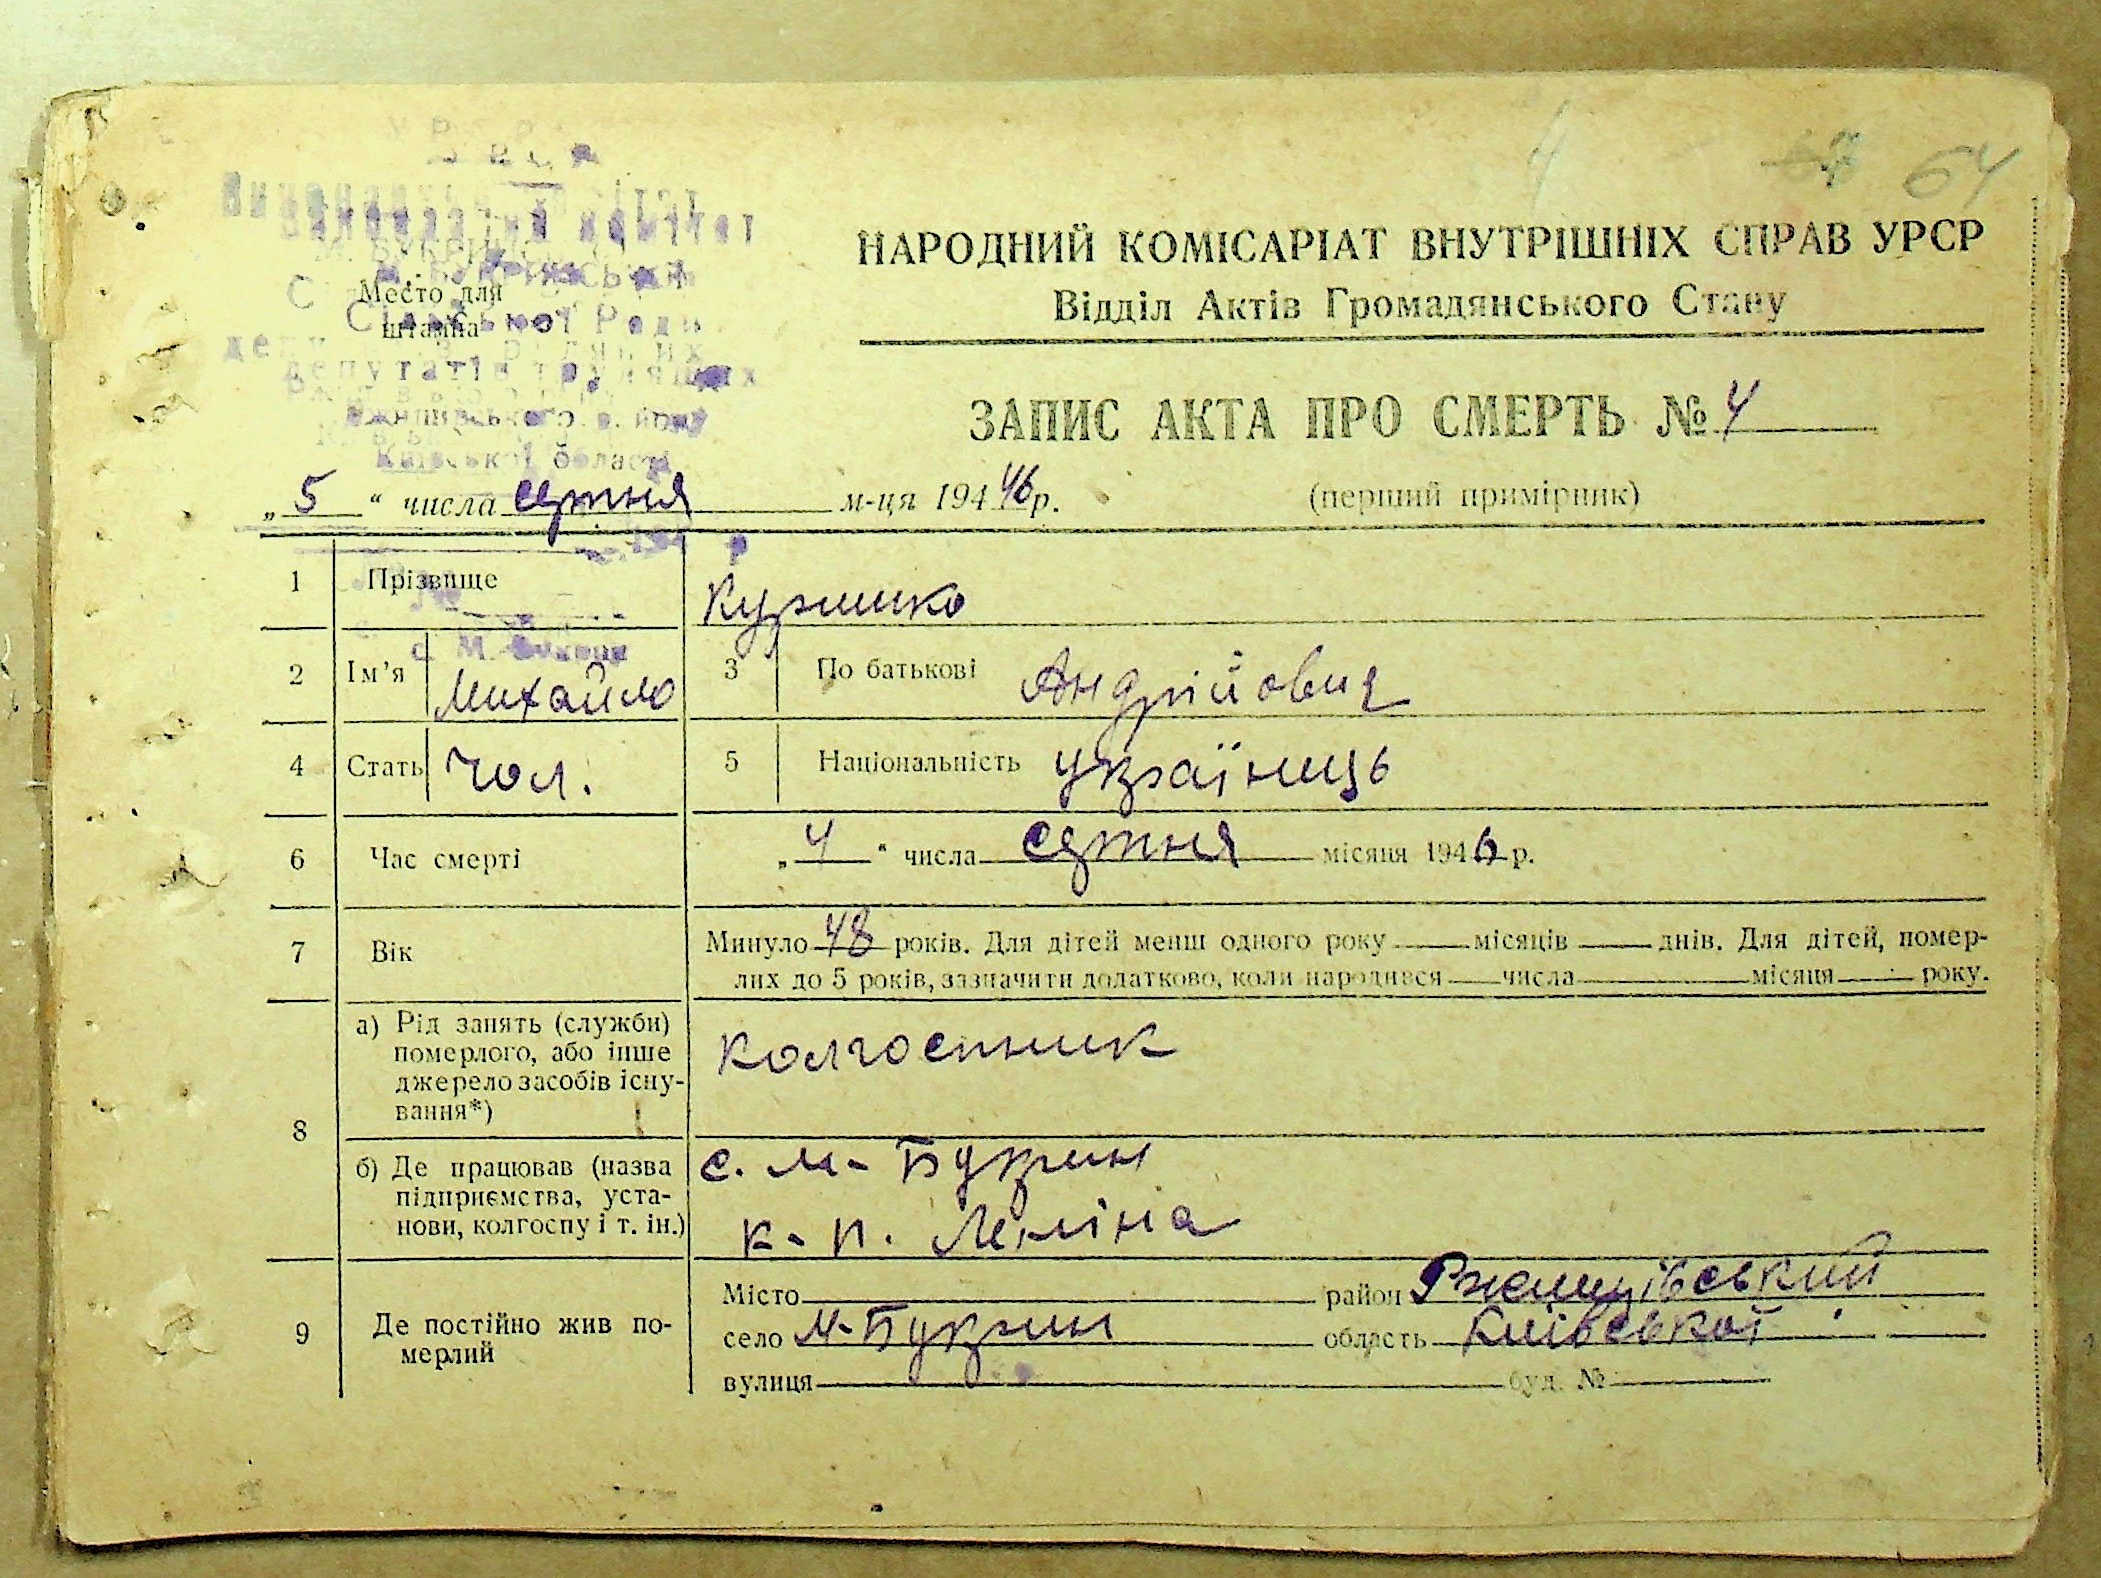 64
НАРОДНИЙ КОМІСАРІАТ ВНУТРІШНІХ СПРАВ УРСР
Відділ Актів Громадянського Стану
Виконавчий комітет
М. Букринської
Сільської Ради
депутатів трудящих
Ржищівського району
Київської області
Место для
штампа
ЗАПИС АКТА ПРО СМЕРТЬ № 4
„5“ числа сітня м-ця 19446р.
(перший примірник)
1 Прізвище
2 Ім'я Михайло 3 По батькові Андрійович
4 Стать чол. 5 Національність україниць
6 Час смерті „4“ числа сітня місяця 1946 р.
7 Вік Минуло 48 років. Для дітей менш одного року місяців днів. Для дітей, помер-
лих до 5 років, зазначити додатково, коли народився числа місяця року.
8 а) Рід занять (служби)
померлого, або інше
джерело засобів існу-
вання*)
колгоспник
б) Де працював (назва
підприємства, уста-
нови, колгоспу і т. ін.)
с. М-Букрин
к-п. Леніна
9 Де постійно жив по-
мерлий
Місто район Ржищівський
село М-Букрин область Київської
вулиця буд. №